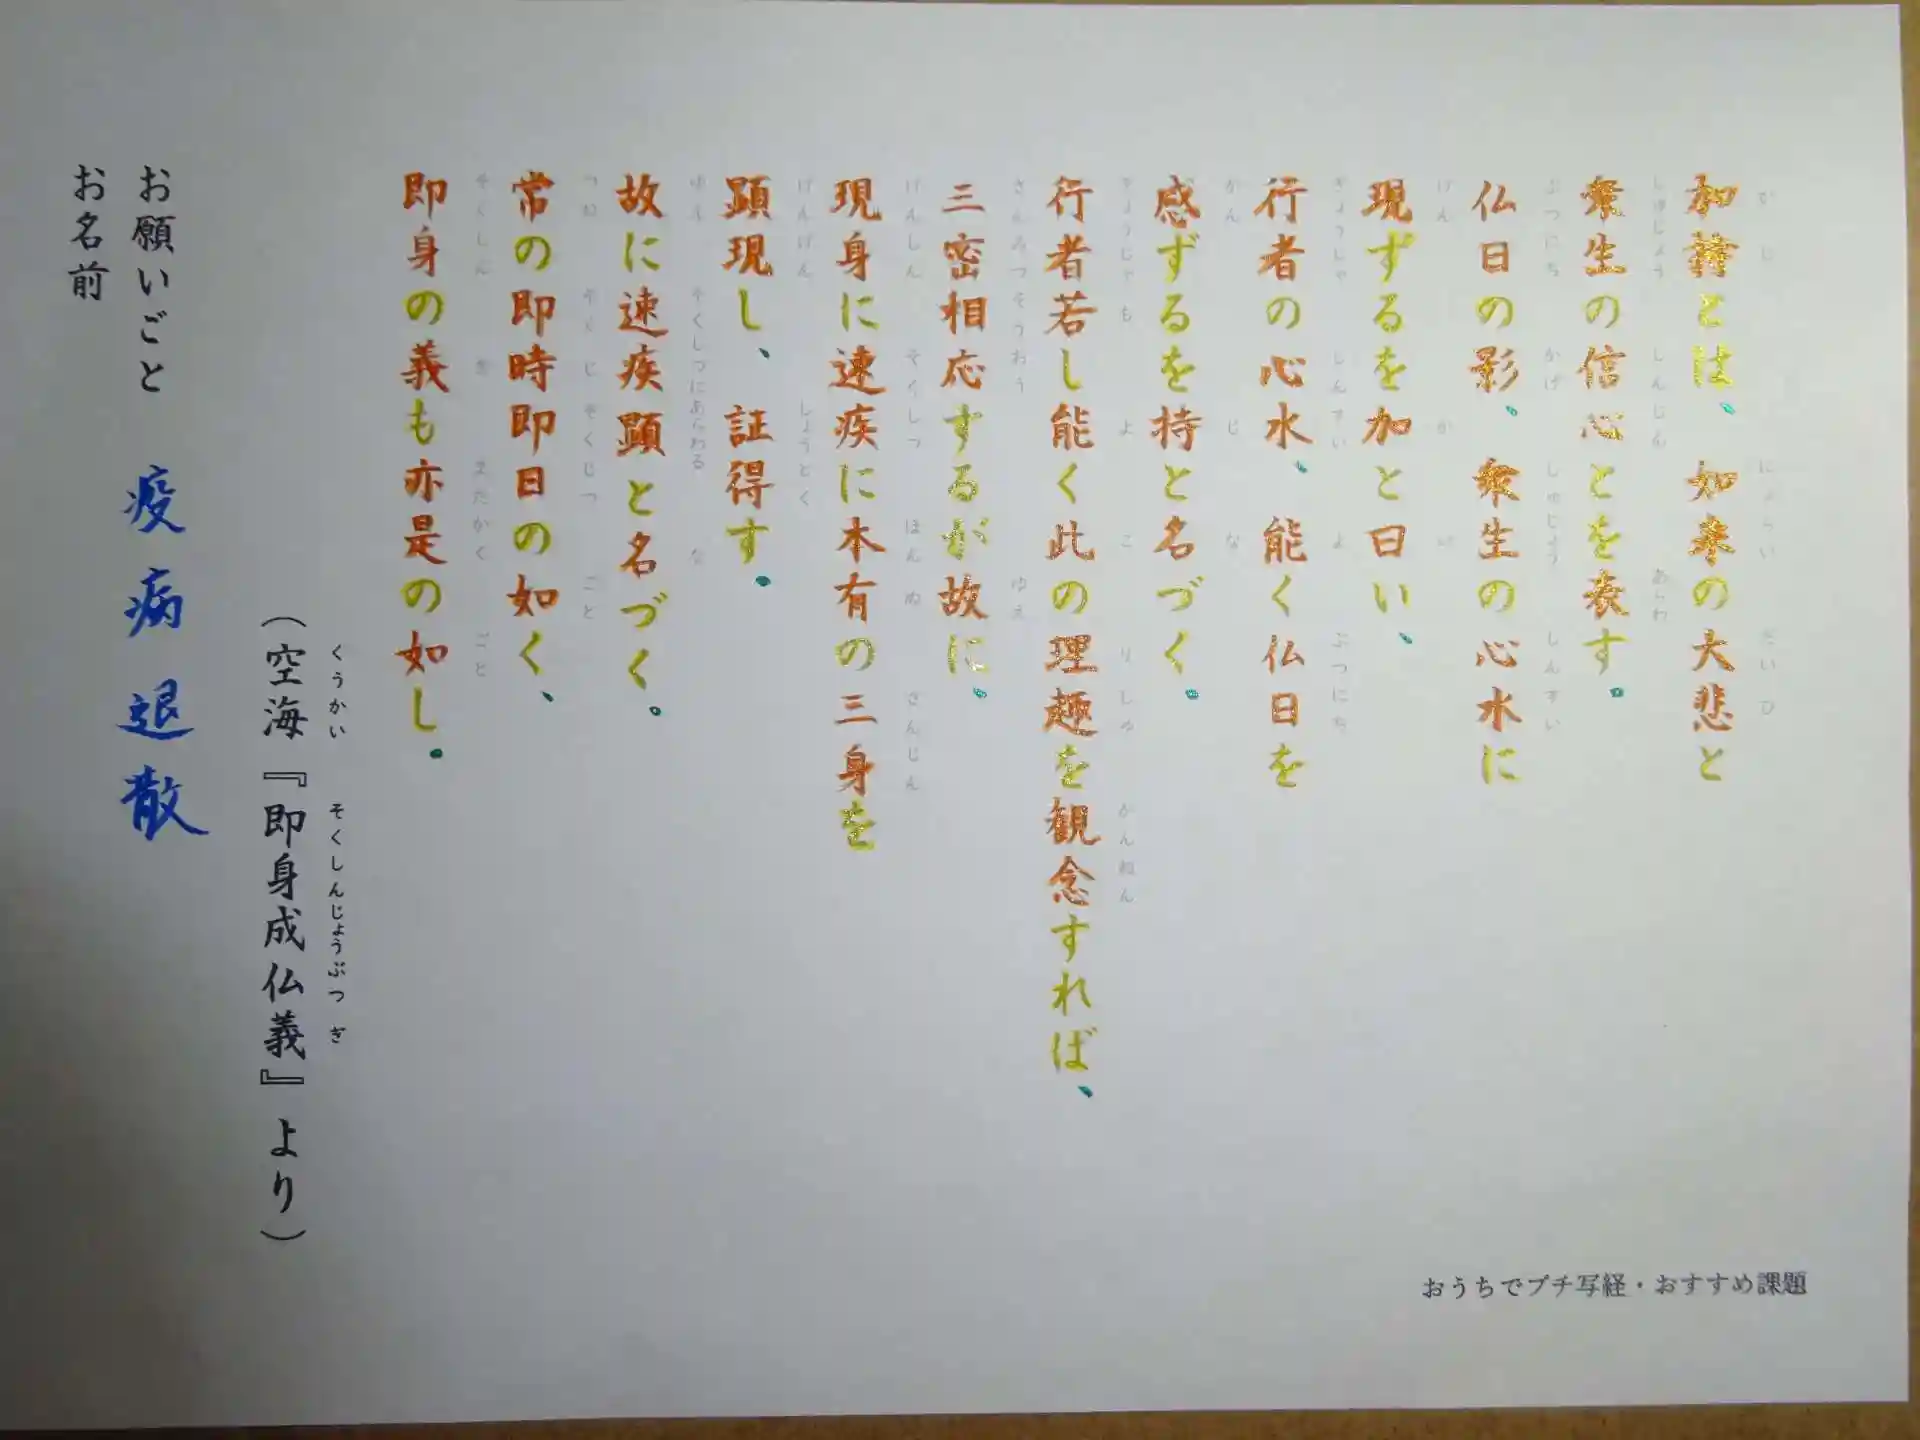 加持とは、如来の大悲と
衆生の信心とを表す。
仏日の影、衆生の心水に
現ずるを加と曰い、
行者の心水、能く仏日を
感ずるを持と名づく。
行者若し能く此の理趣を観念すれば、
三密相応するが故に、
現身に速疾に本有の三身を
顕現し、証得す。
故に速疾顕と名づく。
常の即時即日の如く、
即身の義も亦是の如し。
くうかい そくしんじょうぶつぎ
(空海『即身成仏義』より)
お願いごと 疫病退散
お名前
おうちでプチ写経・おすすめ課題